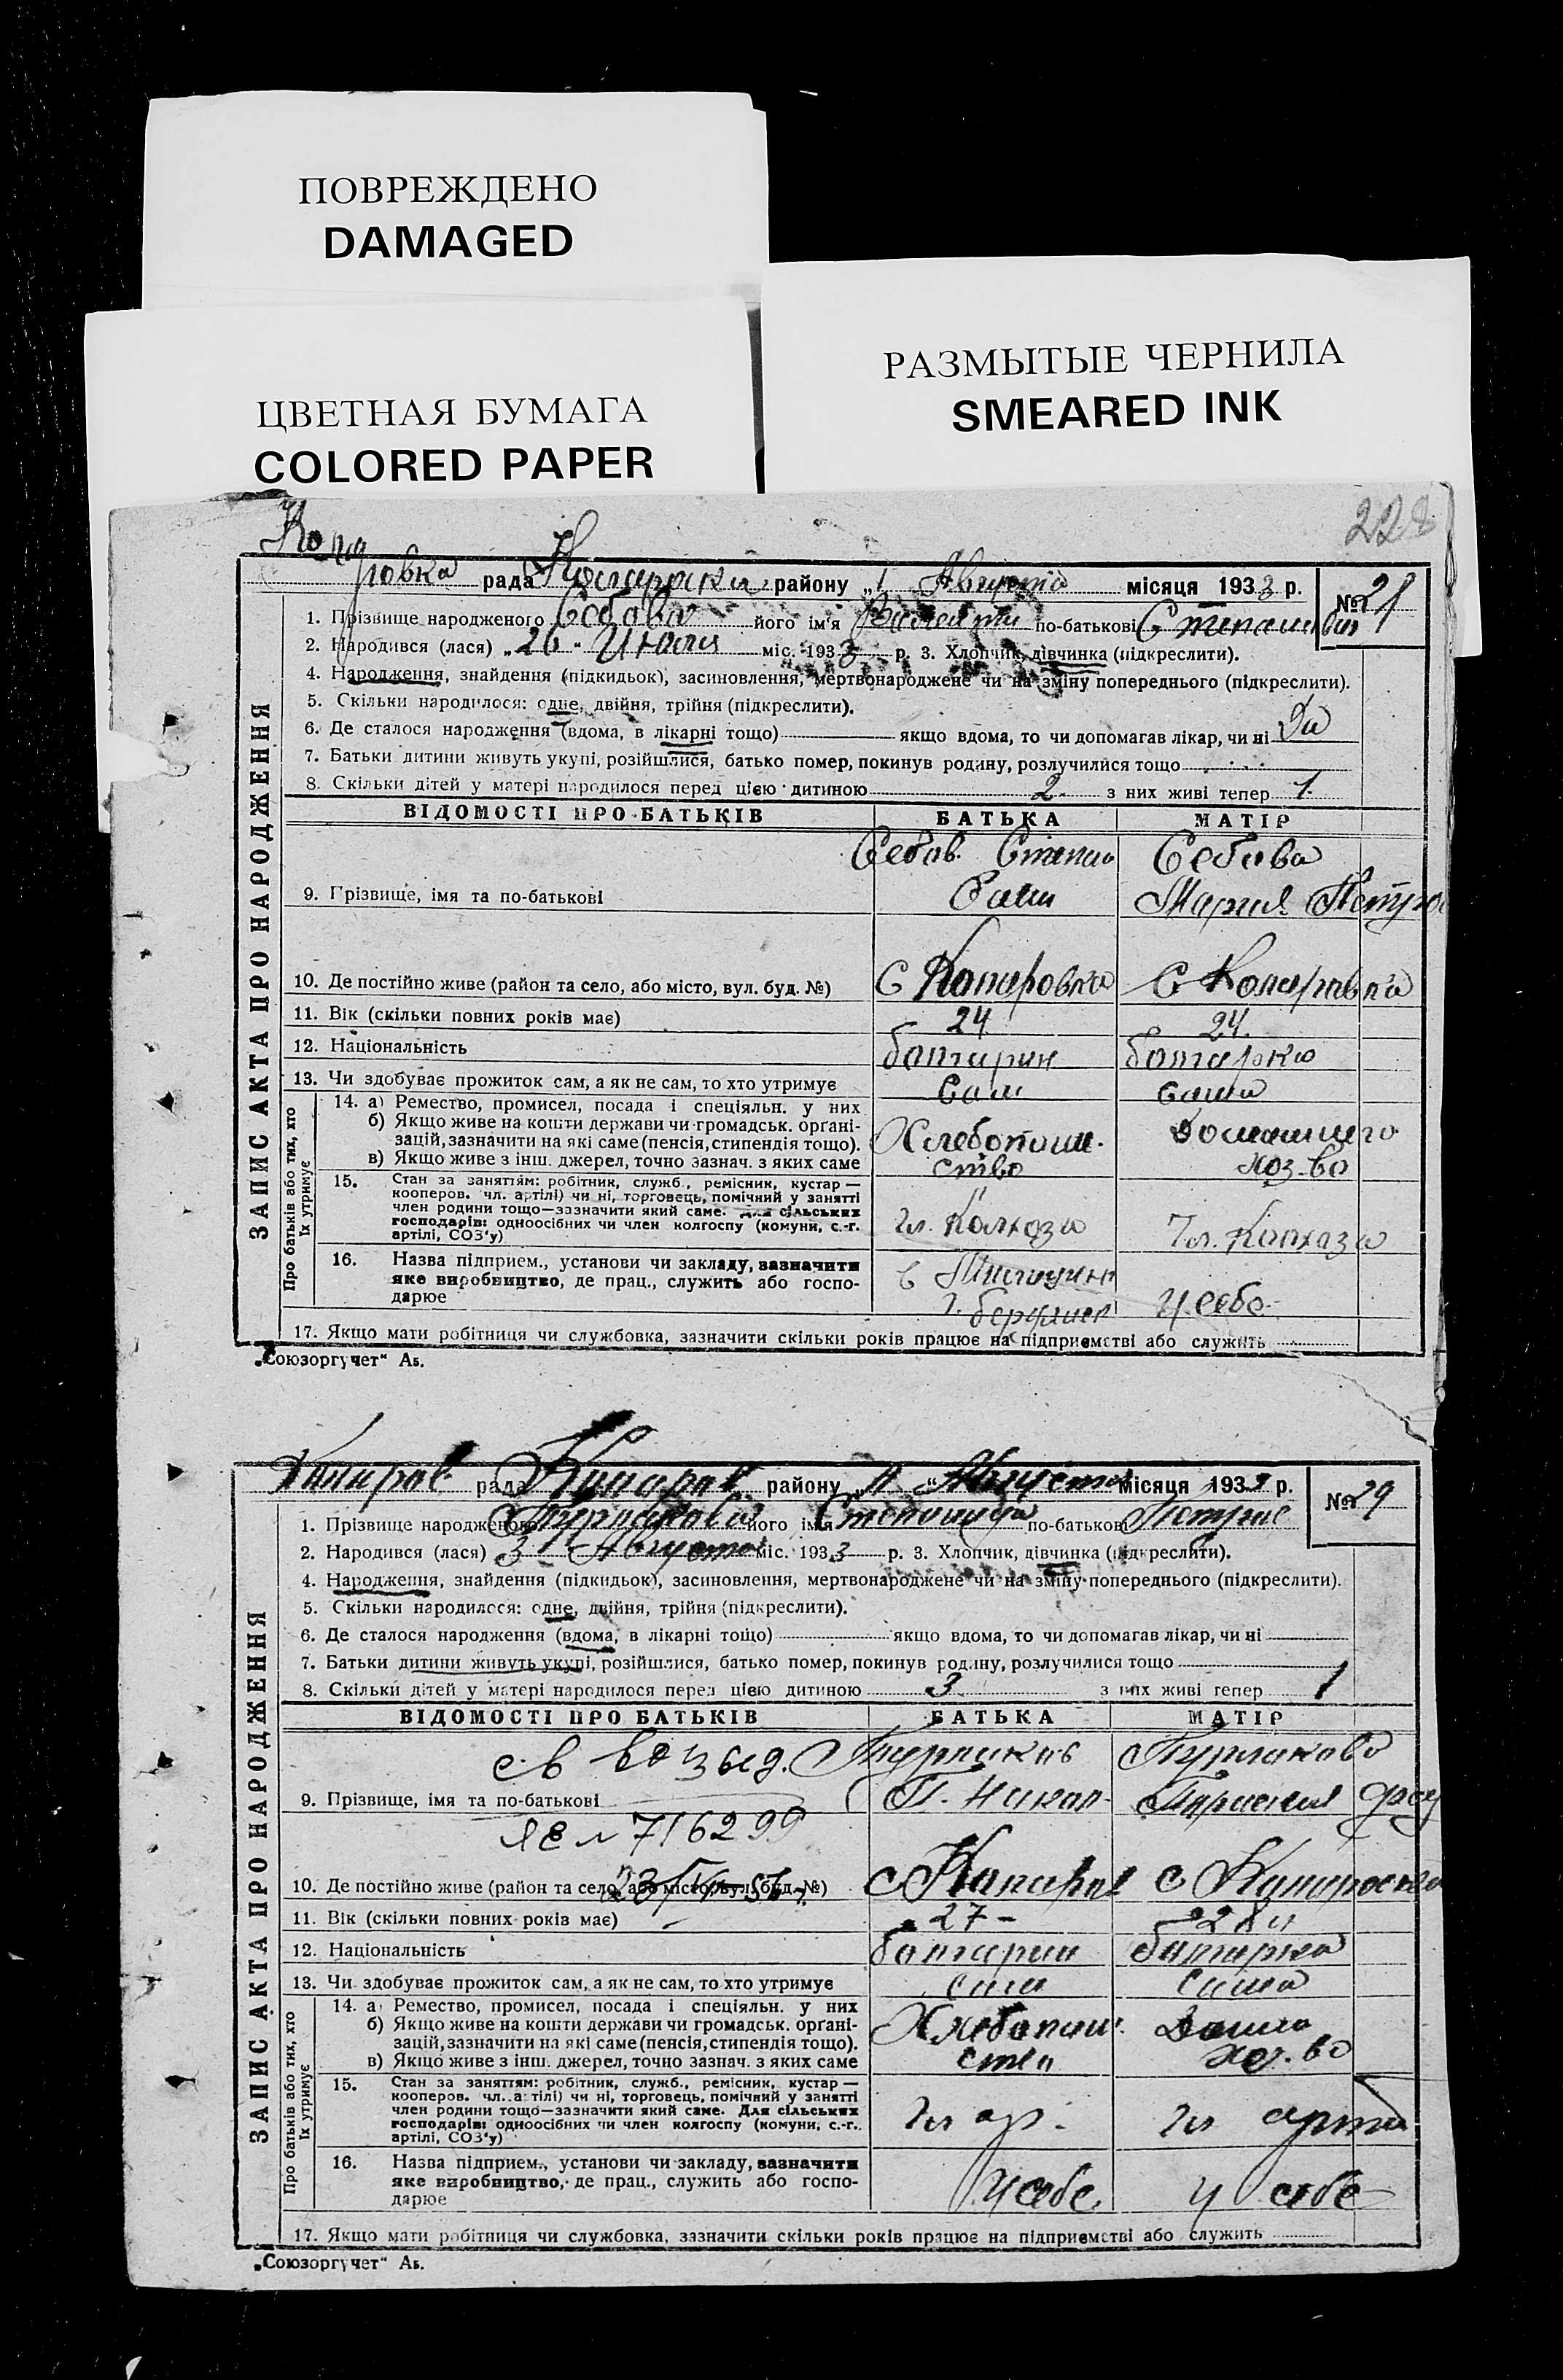 ПОВРЕЖДЕНО
DAMAGED
РАЗМЫТЫЕ ЧЕРНИЛА
SMEARED INK
ЦВЕТНАЯ БУМАГА
COLORED PAPER
228
рада району „1 Августа місяця 1933 р. № 28
1. Прізвище народженого Себова його ім'я по-батькові
2. Народився (лася) „26“ Июля міс. 1933 р. 3. Хлопчик, дівчинка (підкреслити).
4. Народження, знайдення (підкидьок), засиновлення, мертвонароджене чи на зміну попереднього (підкреслити).
5. Скільки народилося: одне, двійня, трійня (підкреслити).
6. Де сталося народження (вдома, в лікарні тощо) якщо вдома, то чи допомагав лікар, чи ні Да
7. Батьки дитини живуть укупі, розійшлися, батько помер, покинув родину, розлучилися тощо
8. Скільки дітей у матері народилося перед цією дитиною 2 з них живі тепер 1
ВІДОМОСТІ ПРО БАТЬКІВ БАТЬКА МАТІР
Себов Степан Себова
9. Прізвище, імя та по-батькові Мария
10. Де постійно живе (район та село, або місто, вул. буд. №) С Копаровка С Копаровка
11. Вік (скільки повних років має) 24 24
12. Національність болгарин болгарка
13. Чи здобуває прожиток сам, а як не сам, то хто утримує Сам сама
14. а) Ремество, промисел, посада і спеціяльн. у них
б) Якщо живе на кошти держави чи громадськ. орґані-
зацій, зазначити на які саме (пенсія, стипендія тощо). Хлебопаш- Домашнего
в) Якщо живе з інш. джерел, точно зазнач. з яких саме ство хоз-во
15. Стан за заняттям: робітник, служб., ремісник, кустар —
кооперов. чл. артілі) чи ні, торговець, помічний у занятті
член родини тощо—зазначити який саме. Для сільських
господарів: одноосібних чи член колгоспу (комуни, с.-г.
артілі, СОЗ'у) Чл. Колхоза Чл. Колхоза
16. Назва підприєм., установи чи закладу, зазначити
яке виробництво, де прац., служить або госпо-
дарює у себе
17. Якщо мати робітниця чи службовка, зазначити скільки років працює на підприємстві або служить
ЗАПИС АКТА ПРО НАРОДЖЕННЯ
Про батьків або тих, хто
їх утримує
„Союзоргучет“ Аб.
рада району Августа місяця 1933 р. № 29
1. Прізвище народженого його імя по-батькові
2. Народився (лася) 3 Августа міс. 1933 р. 3. Хлопчик, дівчинка (підкреслити).
4. Народження, знайдення (підкидьок), засиновлення, мертвонароджене чи на зміну попереднього (підкреслити).
5. Скільки народилося: одне, двійня, трійня (підкреслити).
6. Де сталося народження (вдома, в лікарні тощо) якщо вдома, то чи допомагав лікар, чи ні
7. Батьки дитини живуть укупі, розійшлися, батько помер, покинув родину, розлучилися тощо
8. Скільки дітей у матері народилося перед цією дитиною 3 з них живі тепер 1
ВІДОМОСТІ ПРО БАТЬКІВ БАТЬКА МАТІР
св во выд.
9. Прізвище, імя та по-батькові
716299
10. Де постійно живе (район та село, або місто, вул. буд. №)
11. Вік (скільки повних років має) 27
12. Національність болгарин болгарка
13. Чи здобуває прожиток сам, а як не сам, то хто утримує сам сама
14. а) Ремество, промисел, посада і спеціяльн. у них
б) Якщо живе на кошти держави чи громадськ. орґані-
зацій, зазначити на які саме (пенсія, стипендія тощо). Хлебопаш-
в) Якщо живе з інш. джерел, точно зазнач. з яких саме хоз-во
15. Стан за заняттям: робітник, служб., ремісник, кустар —
кооперов. чл. артілі) чи ні, торговець, помічний у занятті
член родини тощо—зазначити який саме. Для сільських
господарів: одноосібних чи член колгоспу (комуни, с.-г.
артілі, СОЗ'у) чл ар. чл
16. Назва підприєм., установи чи закладу, зазначити
яке виробництво, де прац., служить або госпо-
дарює у себе у себе
17. Якщо мати робітниця чи службовка, зазначити скільки років працює на підприємстві або служить
ЗАПИС АКТА ПРО НАРОДЖЕННЯ
Про батьків або тих, хто
їх утримує
„Союзоргучет“ Аб.